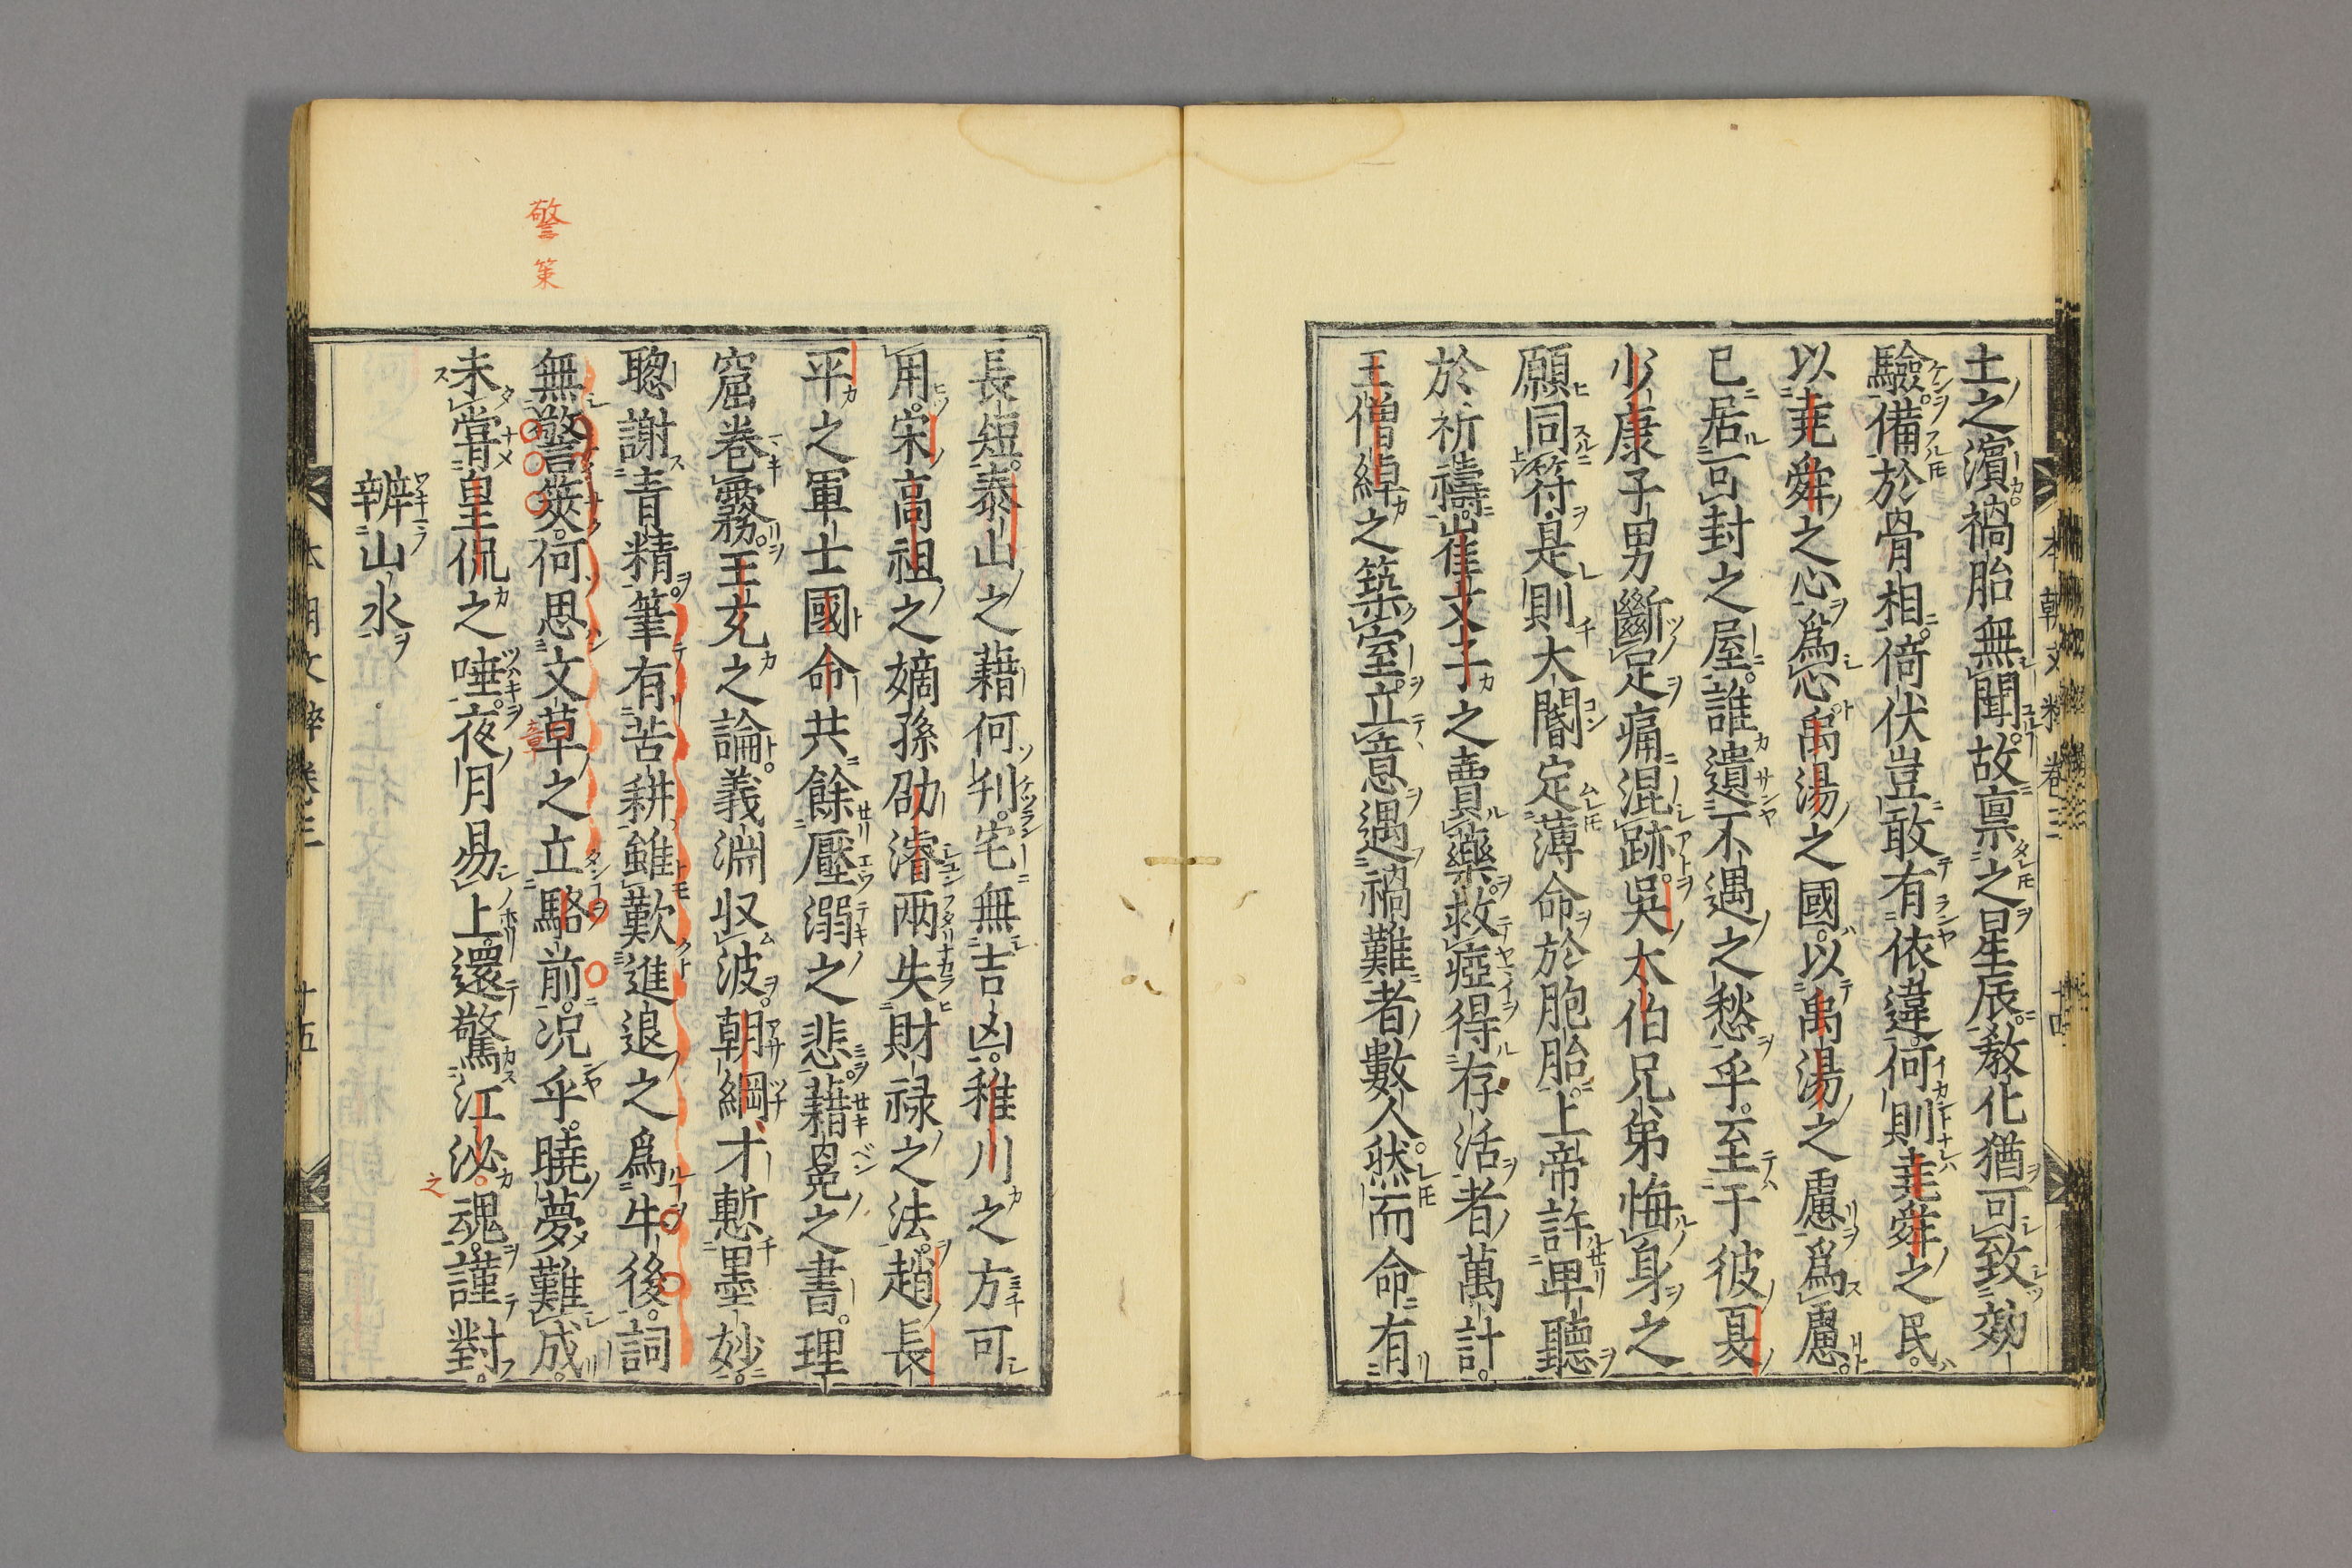 土之濱禍胎無聞故禀之星辰敎化猶可致効
驗備於骨相倚伏豈敢有依違何則堯舜之民
以堯舜之心爲心禹湯之國以禹湯之慮爲慮
已居可封之屋誰遺不遇之愁乎至于彼夏
少康子男斷足痛混跡吳太伯兄弟悔身之
願同符是則大閽定薄命於胞胎上帝許卑聽
於祈禱崔文子之賣藥救瘂得存活者萬計
王僧綽之築室立意遇禍難者數人然而命有
本朝文粹卷三 十四
警策
長短泰山之藉何判宅無吉凶稚川之方可
用宋高祖之嫡孫劭濬兩失財禄之法趙長
平之軍士國命共餘壓溺之悲藉冕之書理
窟巻霧王充之論義淵収波朝綱才慙墨妙
聰謝青精筆有苦耕雖歎進退之爲牛後詞
無警策何思文草之立駱前况乎曉夢難成
章
未甞皇侃之唾夜月易上還驚江泌魂謹對
之
辨山水
本朝文粹卷三 十五